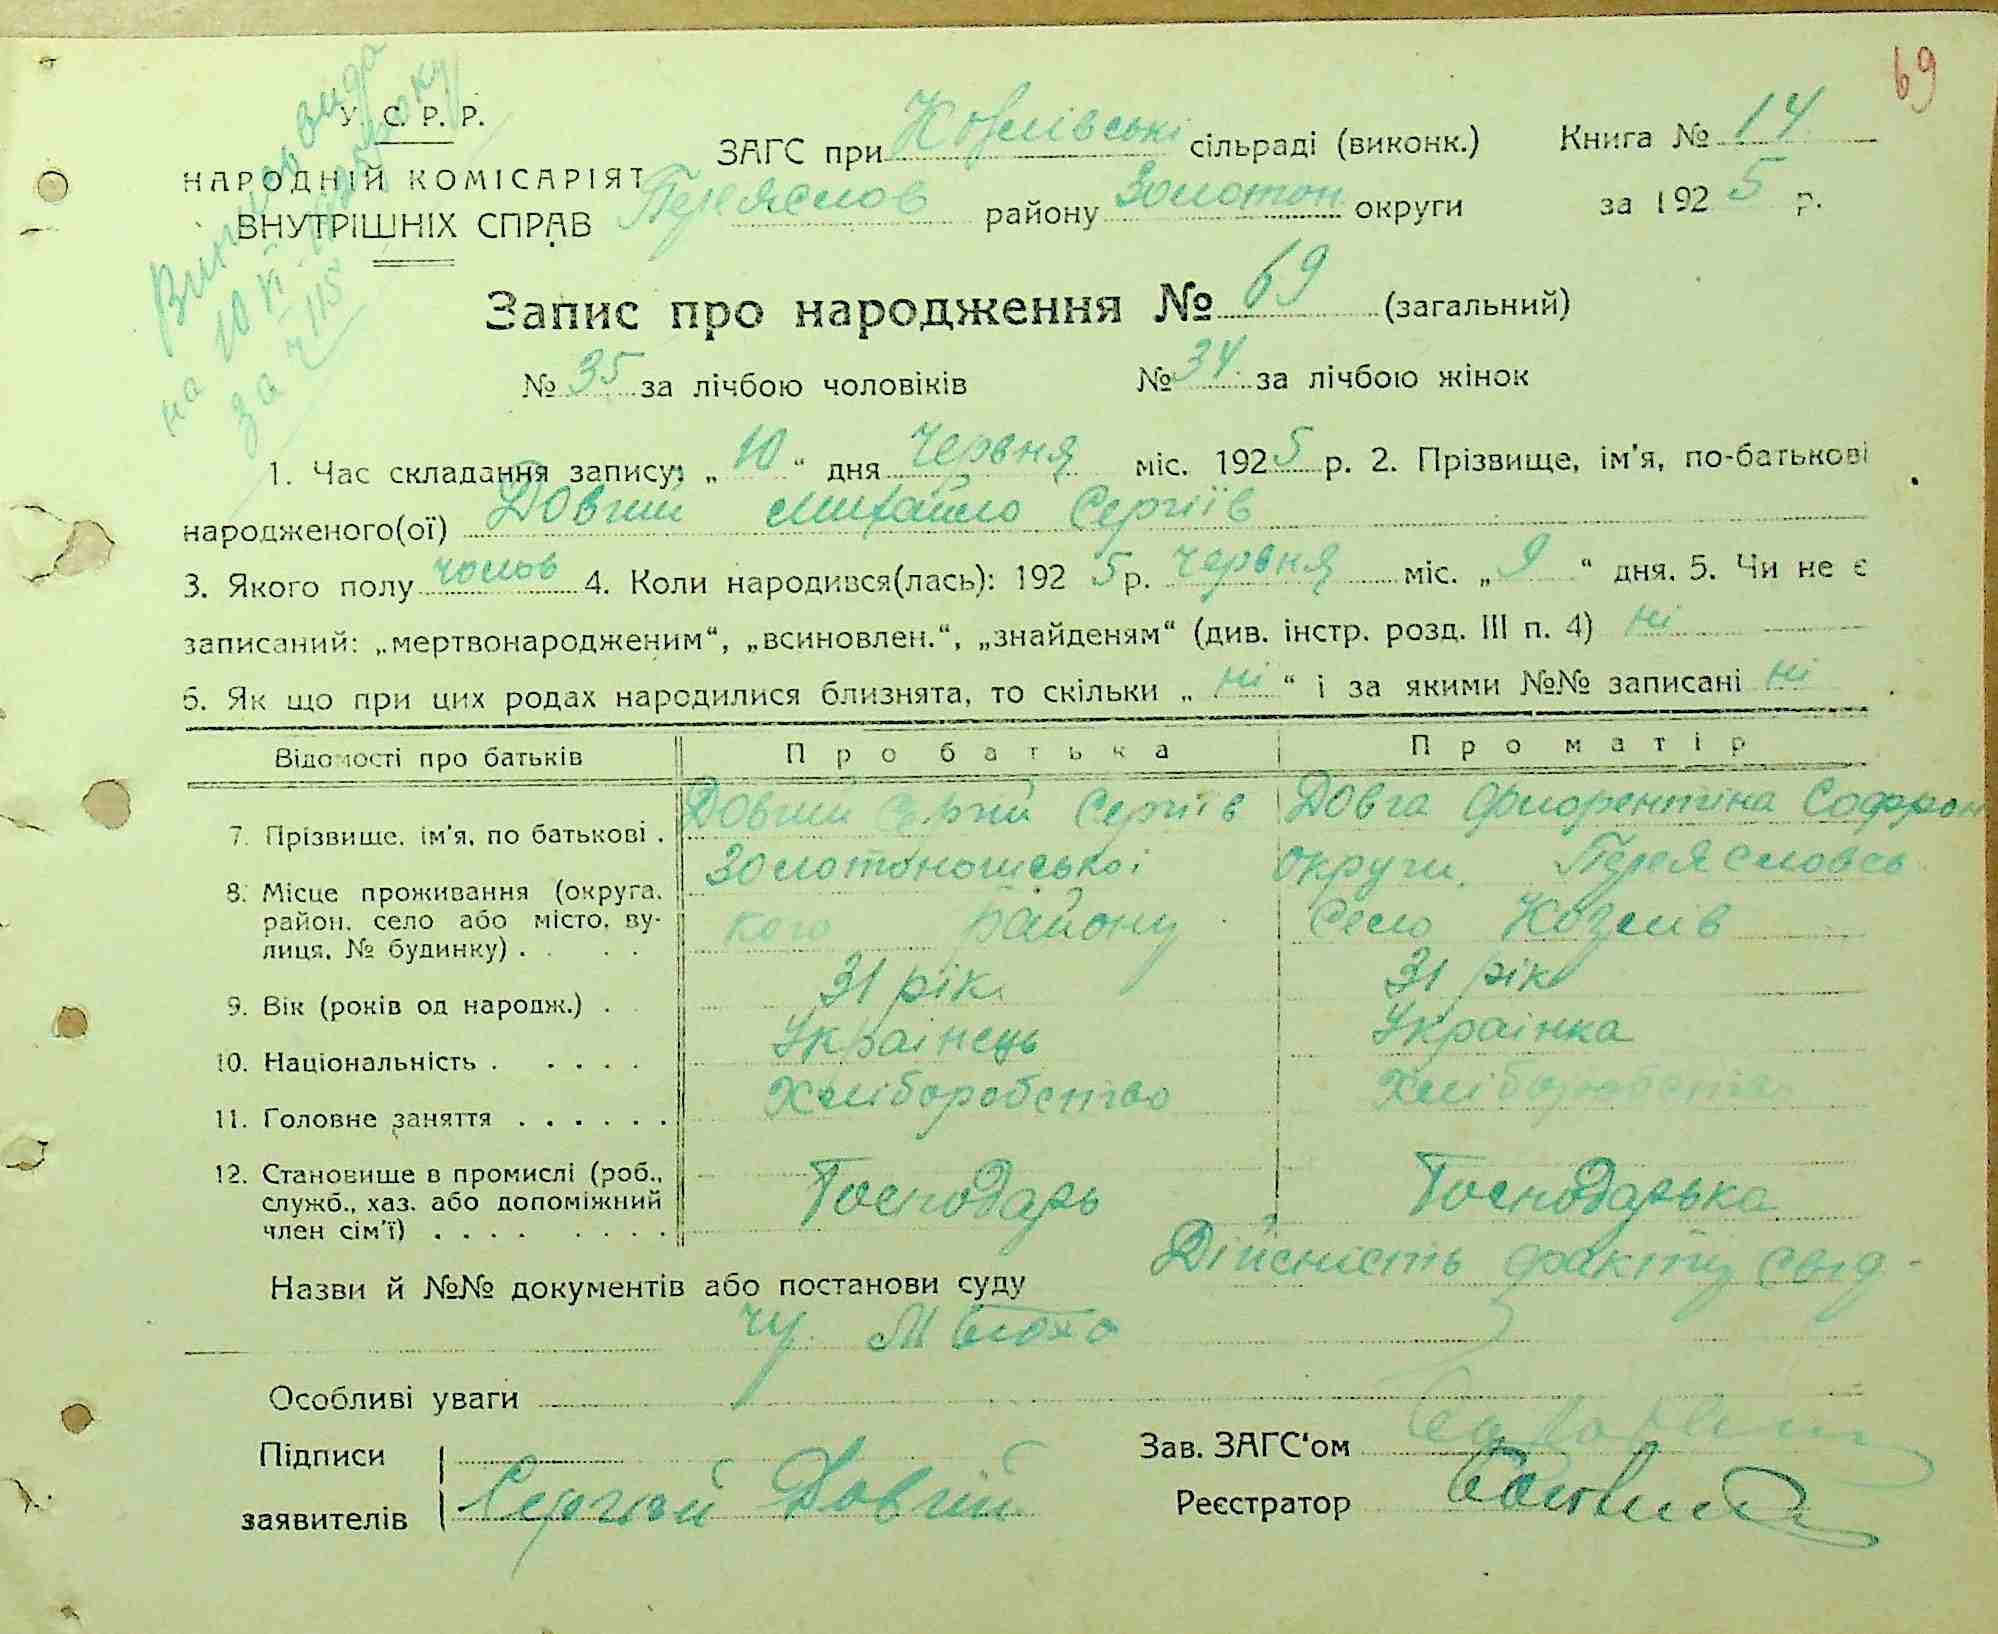 69
У. С. Р. Р.
НАРОДНІЙ КОМІСАРІЯТ
ВНУТРІШНІХ СПРАВ
на 10 VI
за ч 115
ЗАГС при Козлівські сільраді (виконк.) Книга № 14
Переяслов району Золотон округи за 1925 р.
Запис про народження № 69 (загальний)
№ 35 за лічбою чоловіків № 34 за лічбою жінок
1. Час складання запису: „10“ дня Червня міс. 1925 р. 2. Прізвище, ім'я, по-батькові
народженого(ої) Довгий Михайло Сергіїв
3. Якого полу чолов 4. Коли народився(лась): 1925 р. Червня міс. „9“ дня. 5. Чи не є
записаний: „мертвонародженим“, „всиновлен.“, „знайденям“ (див. інстр. розд. III п. 4) ні
6. Як що при цих родах народилися близнята, то скільки „ні“ і за якими №№ записані ні
Відомості про батьків Про батька Про матір
7. Прізвище, ім'я, по батькові . Довгий Сергій Сергіїв Довга Флорентіна Софрон
8. Місце проживання (округа, район, село або місто, вулиця, № будинку) . . . Золотоношської округи Переясловсь
кого району село Козлів
9. Вік (років од народж.) . 31 рік 31 рік
10. Національність . . . . . Українець Українка
11. Головне заняття . . . . . . Хліборобство Хліборобство
12. Становище в промислі (роб., служб., хаз. або допоміжний член сім'ї) . . . . . . . . Господарь Господарька
Назви й №№ документів або постанови суду Дійсність факту свід-
чу М Блоха
Особливі уваги
Підписи
заявителів Сергій Довгий
Зав. ЗАГС'ом
Реєстратор